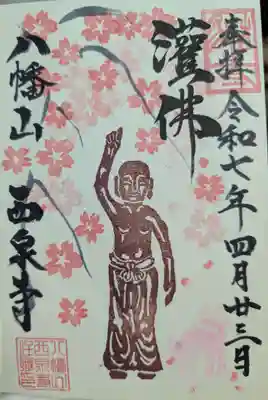 奉拝 令和七年四月廿三日
灌佛
八幡山 西泉寺